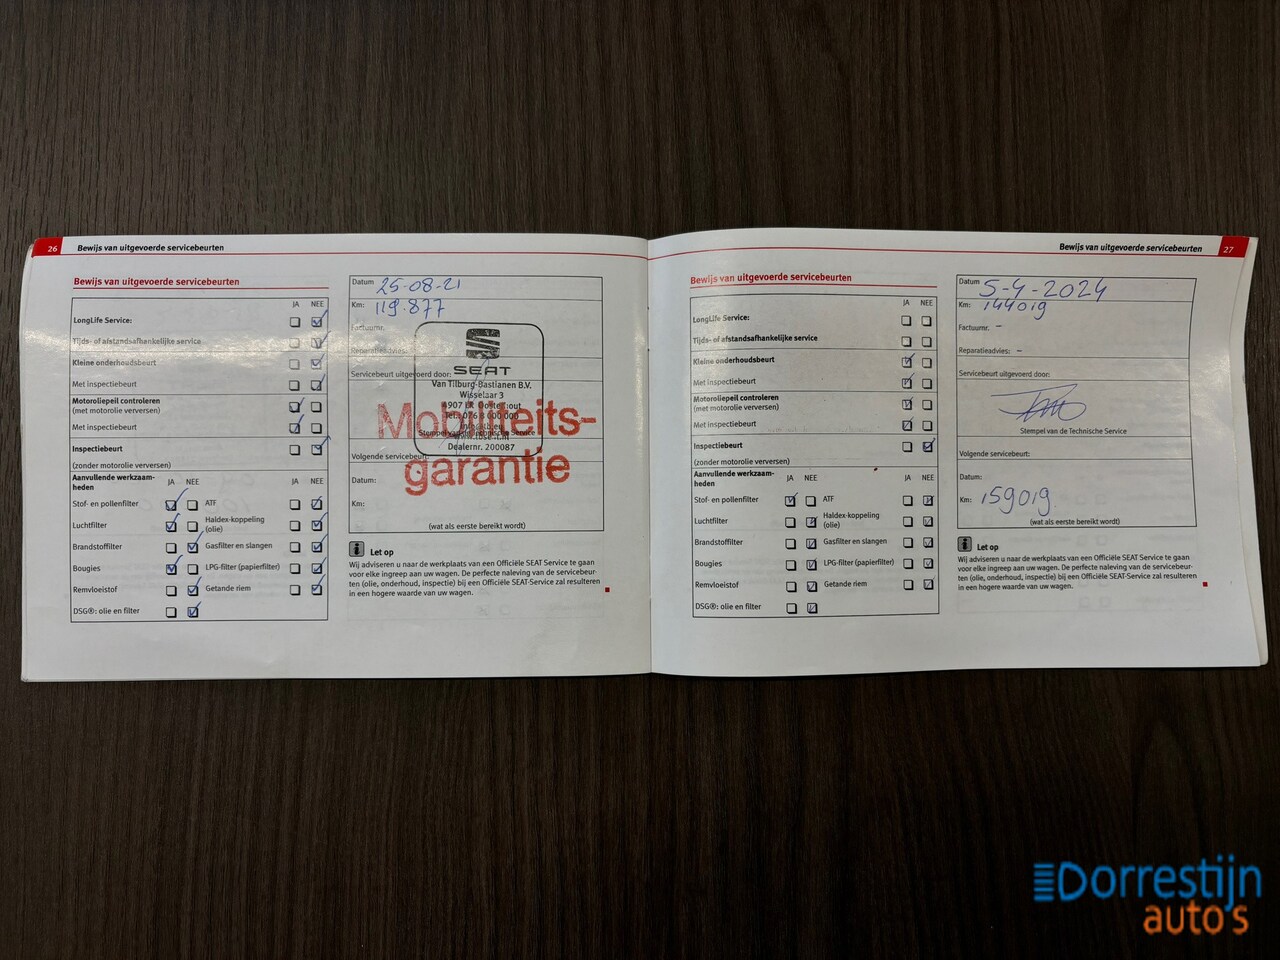 26 Bewijs van uitgevoerde servicebeurten
Bewijs van uitgevoerde servicebeurten
JA NEE
LongLife Service:
Tijds- of afstandsafhankelijke service
Kleine onderhoudsbeurt
Met inspectiebeurt
Motoroliepeil controleren
(met motorolie verversen)
Met inspectiebeurt
Inspectiebeurt
(zonder motorolie verversen)
Aanvullende werkzaam-
heden
JA NEE JA NEE
Stof- en pollenfilter ATF
Luchtfilter Haldex-koppeling
(olie)
Brandstoffilter Gasfilter en slangen
Bougies LPG-filter (papierfilter)
Remvloeistof Getande riem
DSG®: olie en filter
Datum 25-08-21
Km: 119.877
Factuurnr.
Reparatieadvies:
Servicebeurt uitgevoerd door:
SEAT
Van Tilburg-Bastianen B.V.
Wisselaar 3
Dealernr. 200087
Mobiliteits-
garantie
Stempel van de Technische Service
Volgende servicebeurt:
Datum:
Km:
(wat als eerste bereikt wordt)
Let op
Wij adviseren u naar de werkplaats van een Officiële SEAT Service te gaan
voor elke ingreep aan uw wagen. De perfecte naleving van de servicebeur-
ten (olie, onderhoud, inspectie) bij een Officiële SEAT-Service zal resulteren
in een hogere waarde van uw wagen.
Bewijs van uitgevoerde servicebeurten 27
Bewijs van uitgevoerde servicebeurten
JA NEE
LongLife Service:
Tijds- of afstandsafhankelijke service
Kleine onderhoudsbeurt
Met inspectiebeurt
Motoroliepeil controleren
(met motorolie verversen)
Met inspectiebeurt
Inspectiebeurt
(zonder motorolie verversen)
Aanvullende werkzaam-
heden
JA NEE JA NEE
Stof- en pollenfilter ATF
Luchtfilter Haldex-koppeling
(olie)
Brandstoffilter Gasfilter en slangen
Bougies LPG-filter (papierfilter)
Remvloeistof Getande riem
DSG®: olie en filter
Datum 5-4-2024
Km: 144019
Factuurnr. -
Reparatieadvies: -
Servicebeurt uitgevoerd door:
Stempel van de Technische Service
Volgende servicebeurt:
Datum:
Km: 159019
(wat als eerste bereikt wordt)
Let op
Wij adviseren u naar de werkplaats van een Officiële SEAT Service te gaan
voor elke ingreep aan uw wagen. De perfecte naleving van de servicebeur-
ten (olie, onderhoud, inspectie) bij een Officiële SEAT-Service zal resulteren
in een hogere waarde van uw wagen.
Dorrestijn
auto's